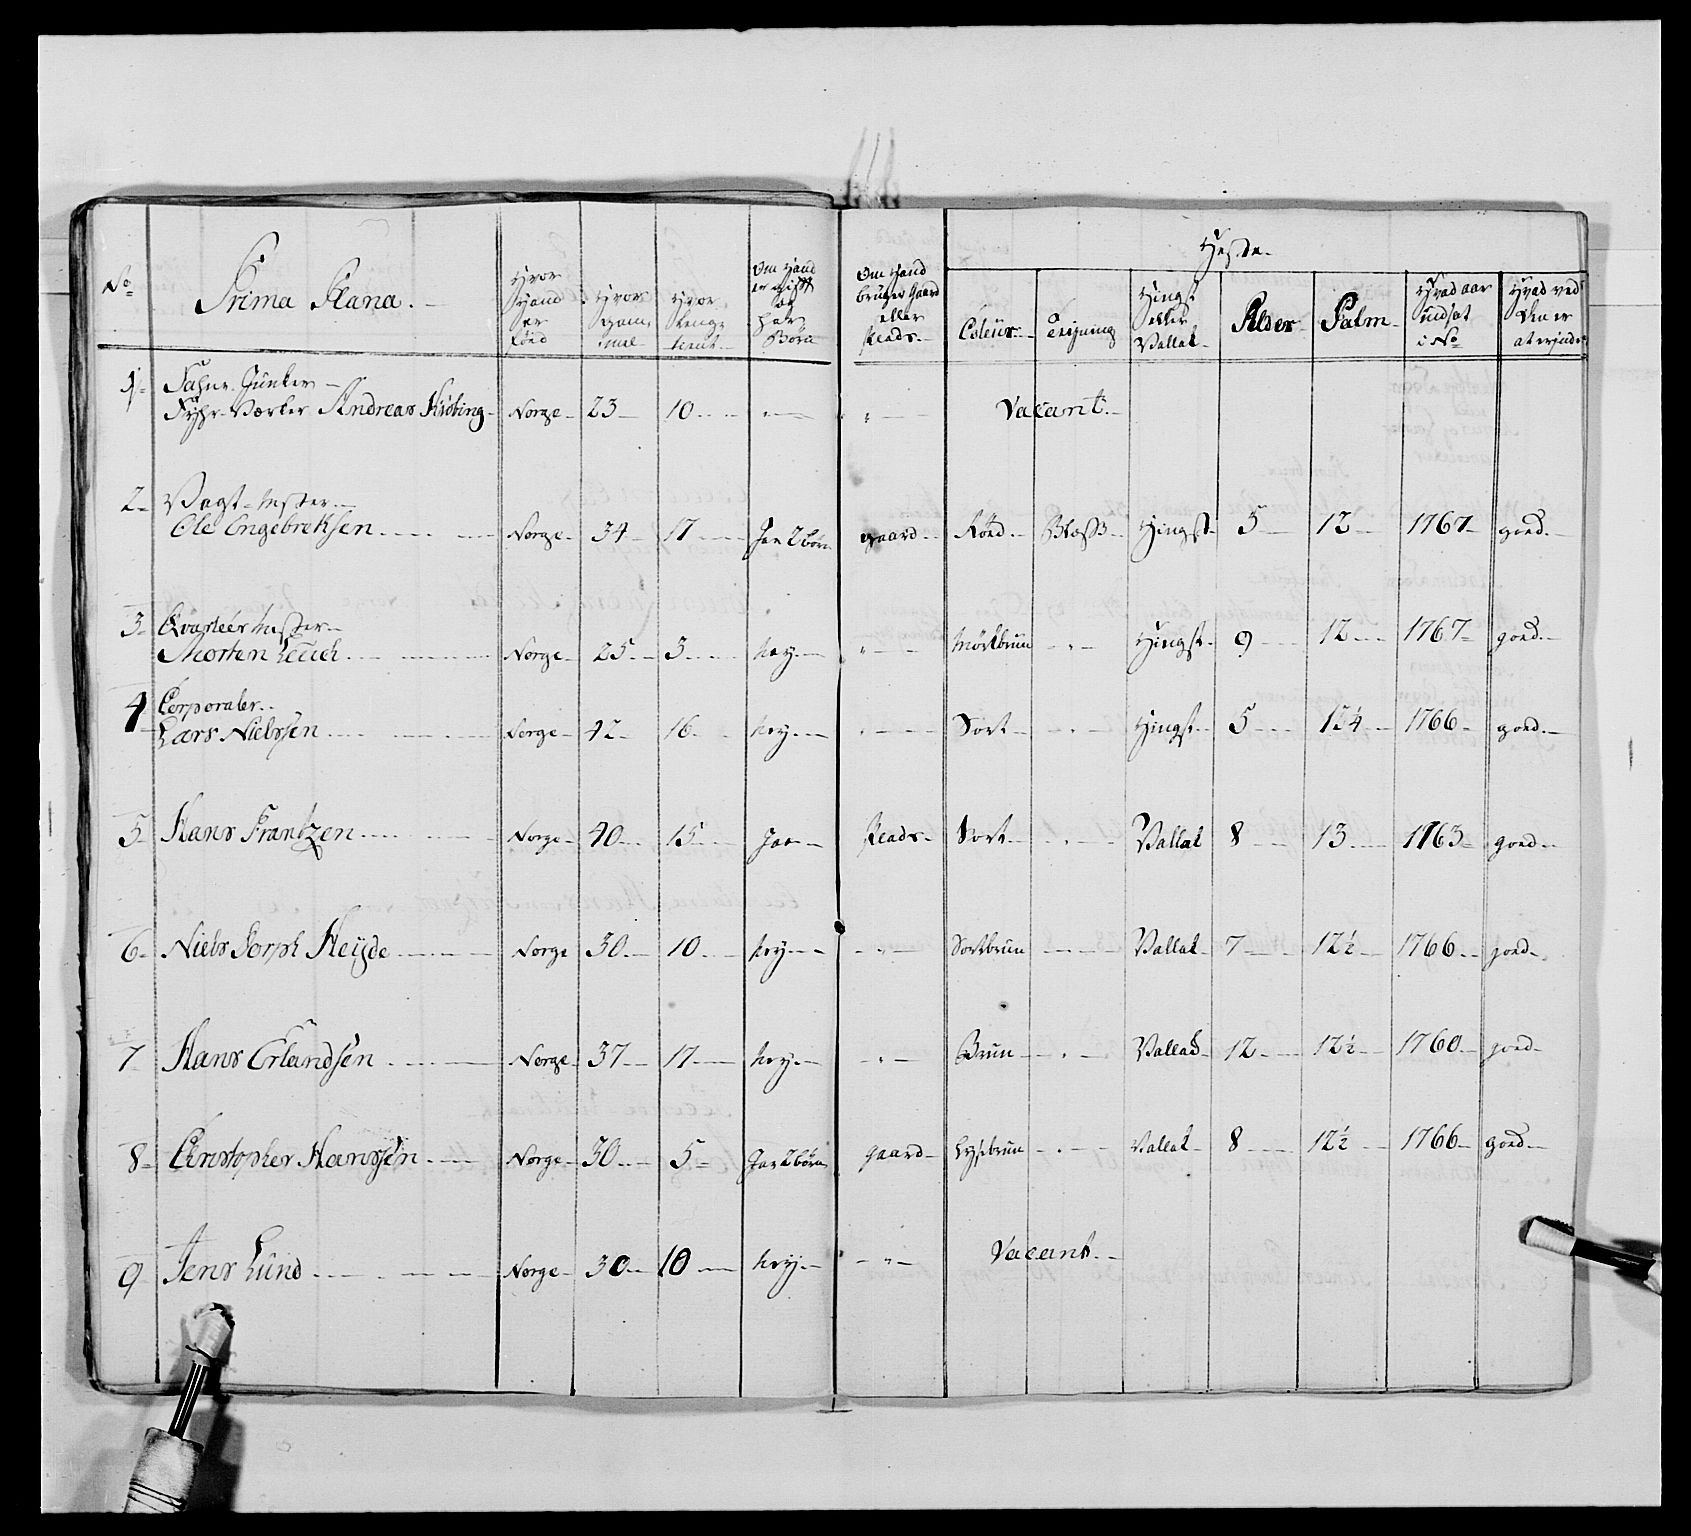 No
Prima Plana.
Hvor Hand er fød
Hvor Gam- mel
Hvor Lenge tient
Om Hand er gift og har Børn
Om Hand bruger Gaard eller Plads.
Heste.
Coleur
Teigning
Hingst eller Vallak
Alder
Palm
Hvad aar indsat i No
Hvad ved den er at erindre
1. Fahne Junker
Andreas Norge 23 10 Vacant.
2 Vagt-Mester
Ole Engebretsen Norge 34 17 Jaa 2 børn gaard Rød Blesß Hingst 5 12 1767 goed
3 Qvarteer Mester
Morten Leuch Norge 25 3 Ney Mörkbrun Hingst 9 12 1767 goed
4 Corporaler
Lars Nielssen Norge 42 16 Ney Sort Hingst 5 12¼ 1766 goed
5 Hans Frantzen Norge 40 15 Jaa Plads Sort Vallak 8 13 1763 goed
6 Niels Heyde Norge 30 10 Ney Sortbrun Vallak 7 12½ 1766 goed
7 Hans Erlandsen Norge 37 17 Ney Brun Vallak 12 12½ 1760 goed
8 Christopher Hanssen Norge 30 5 Jaa 2 børn gaard Lysebrun Vallak 8 12½ 1766 goed
9 Jens Lund Norge 30 10 Ney Vacant.